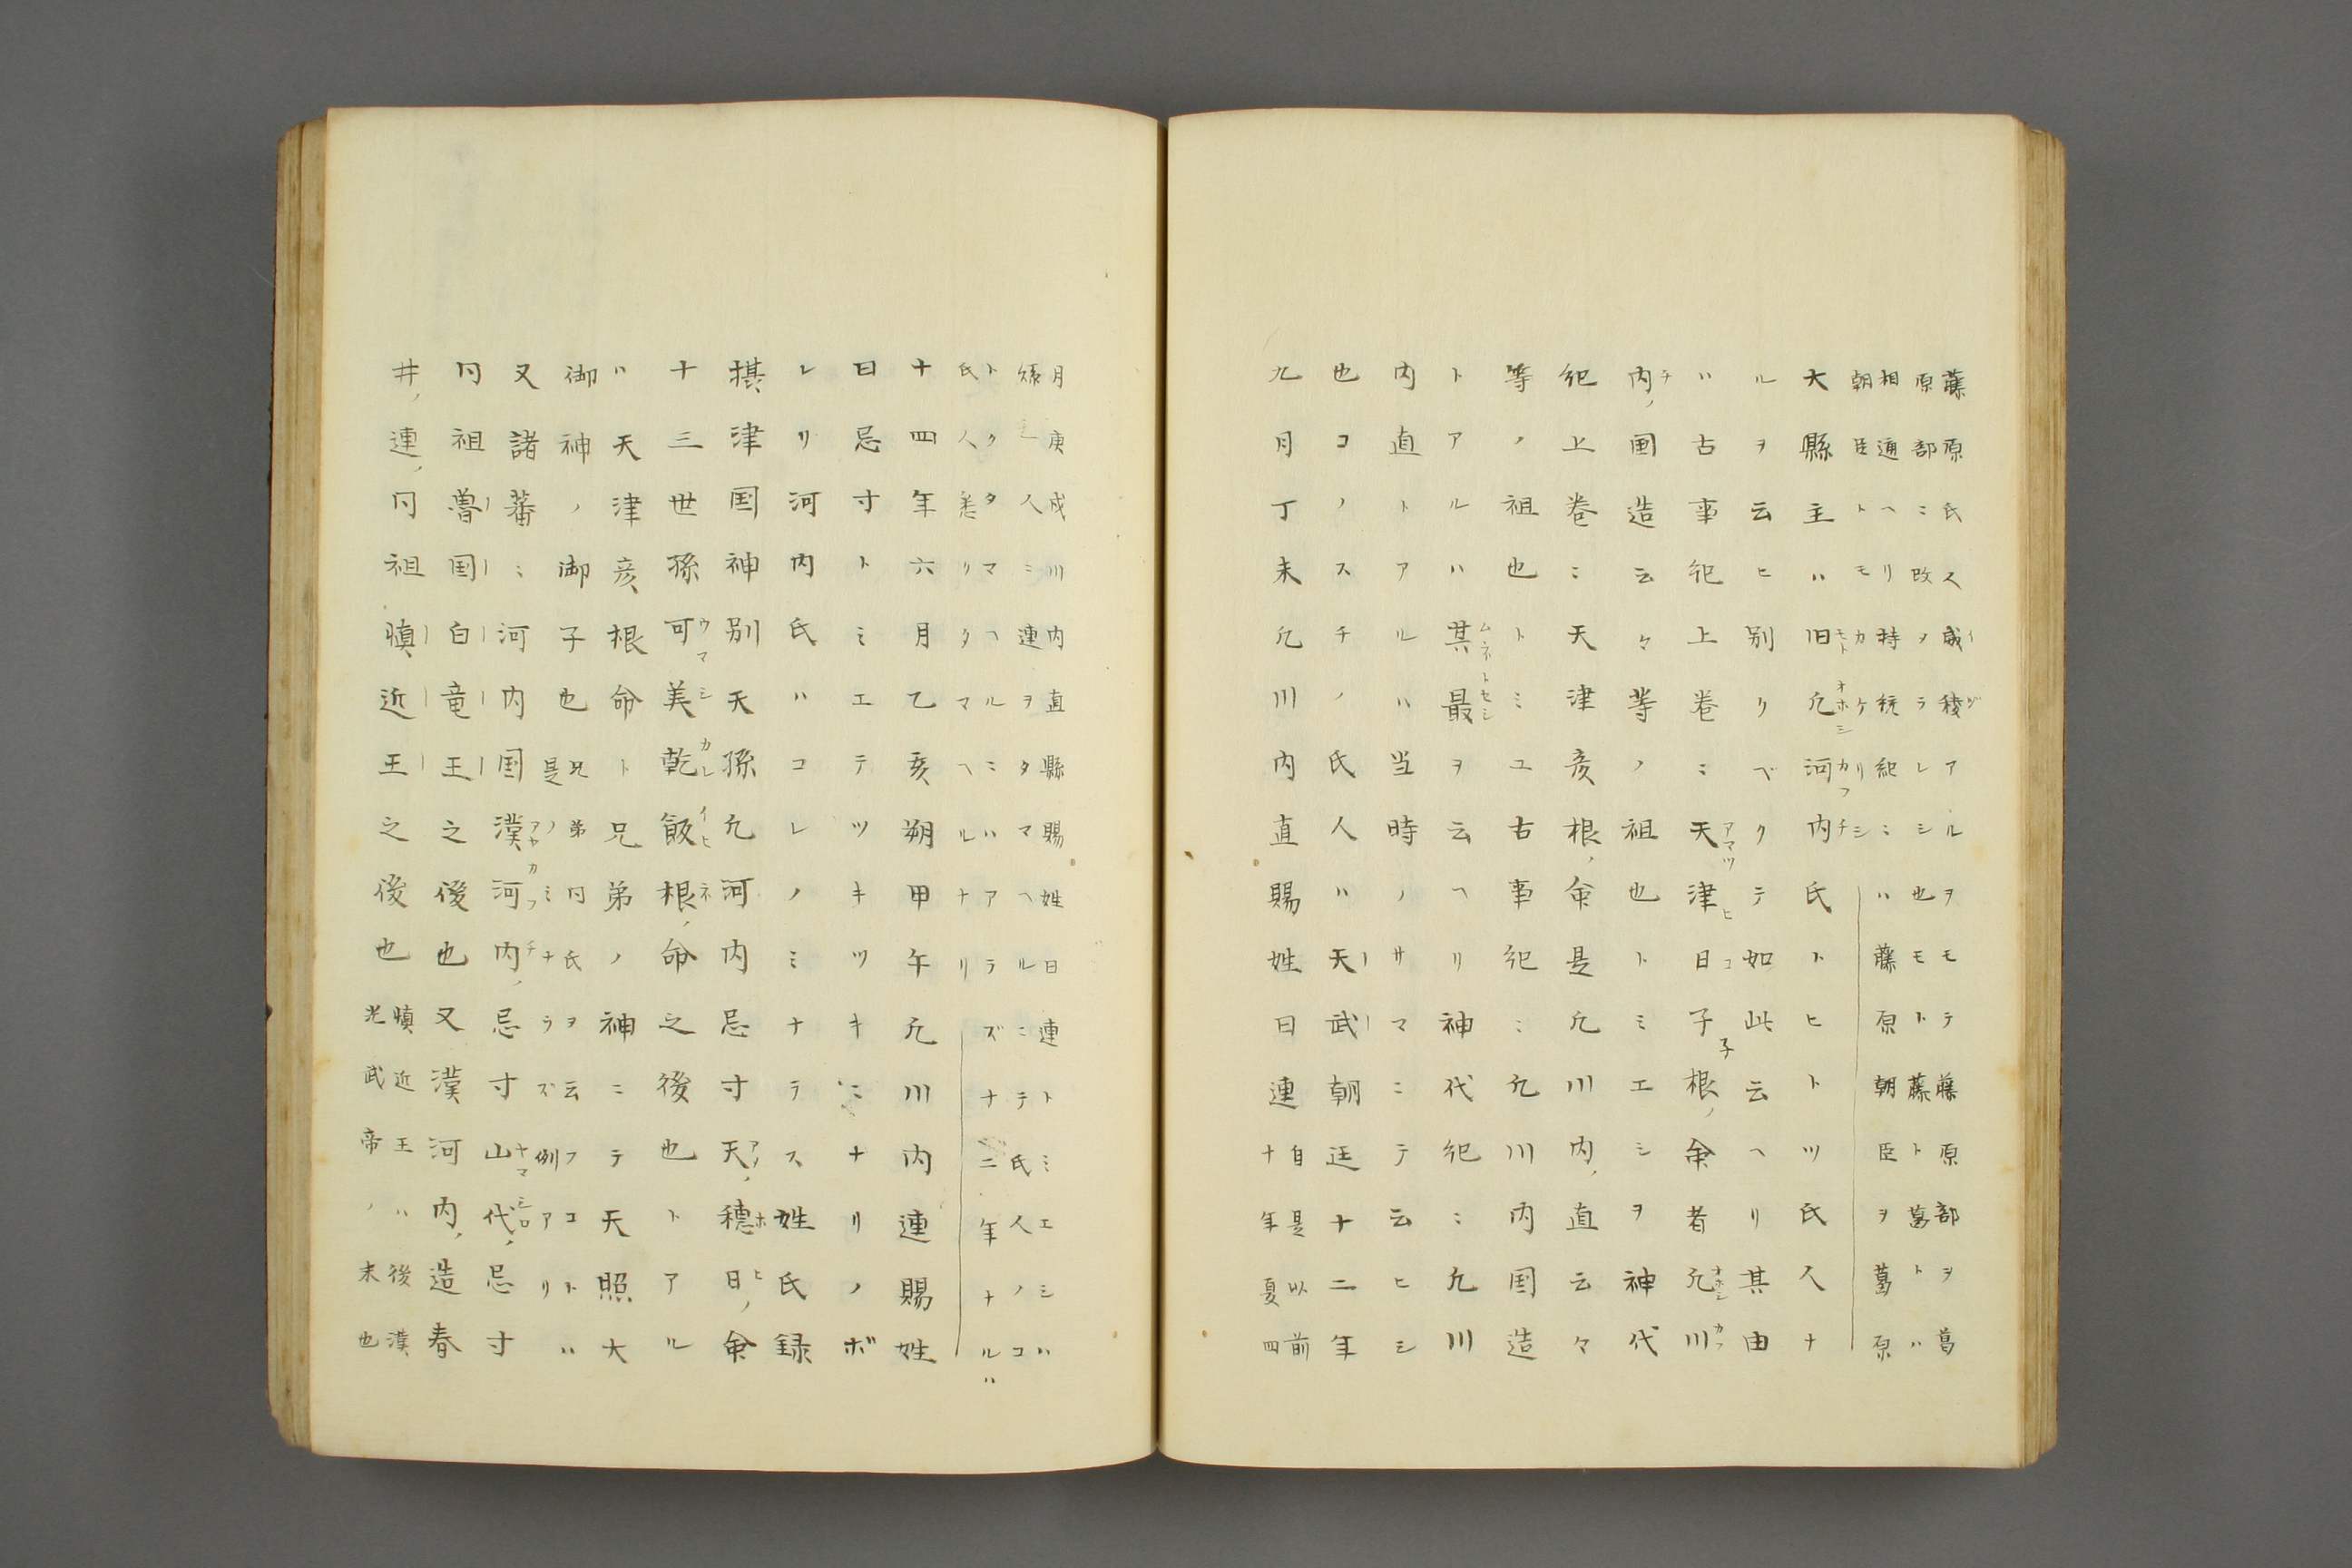 藤原氏人威稜アルヲモテ藤原部ヲ葛
原部ニ改ヲラレシ也モト藤ト葛トハ
相通ヘリ持統紀ニハ藤原朝臣ヲ葛原
朝臣トモカケリシ
大縣主ハ旧凡河内氏トヒトツ氏人ナ
ルヲ云ヒ別リベクテ如此云ヘリ其由
ハ古事紀上巻ニ天津日子根命者凡川
内国造云々等ノ祖也トミエシヲ神代
紀上巻ニ天津彦根命是凡川内直云々
等ノ祖也トミユ古事紀ニ凡川内国造
トアルハ其最ヲ云ヘリ神代紀ニ凡川
内直トアルハ当時ノサマニテ云ヒシ
也コノスチノ氏人ハ天武朝廷十二年
九月丁未凡川内直賜姓曰連自是以前
十年夏四
月庚戌川内直縣賜姓曰連トミエシハ
人ニ連ヲタマヘルニテ氏人ノコ
トクタマヘルニハアラズナ二年ナルハ
氏人悉リタマヘルナリ
十四年六月乙亥朔甲午凡川内連賜姓
曰忌寸トミエテツキツキニナリノボ
レリ河内氏ハコレノミナラス姓氏録
摂津国神別天孫凡河内忌寸天穂日命
十三世孫可美乾飯根命之後也トアル
ハ天津彦根命ト兄弟ノ神ニテ天照大
御神ノ御子也兄弟同氏ヲ云フコトハ
是ノミナラズ例アリ
又諸蕃ニ河内国漢河内忌寸山代忌寸
同祖魯国白竜王之後也又漢河内造春
井連同祖慎近王之後也慎近王ハ後漢
光武帝ノ末也